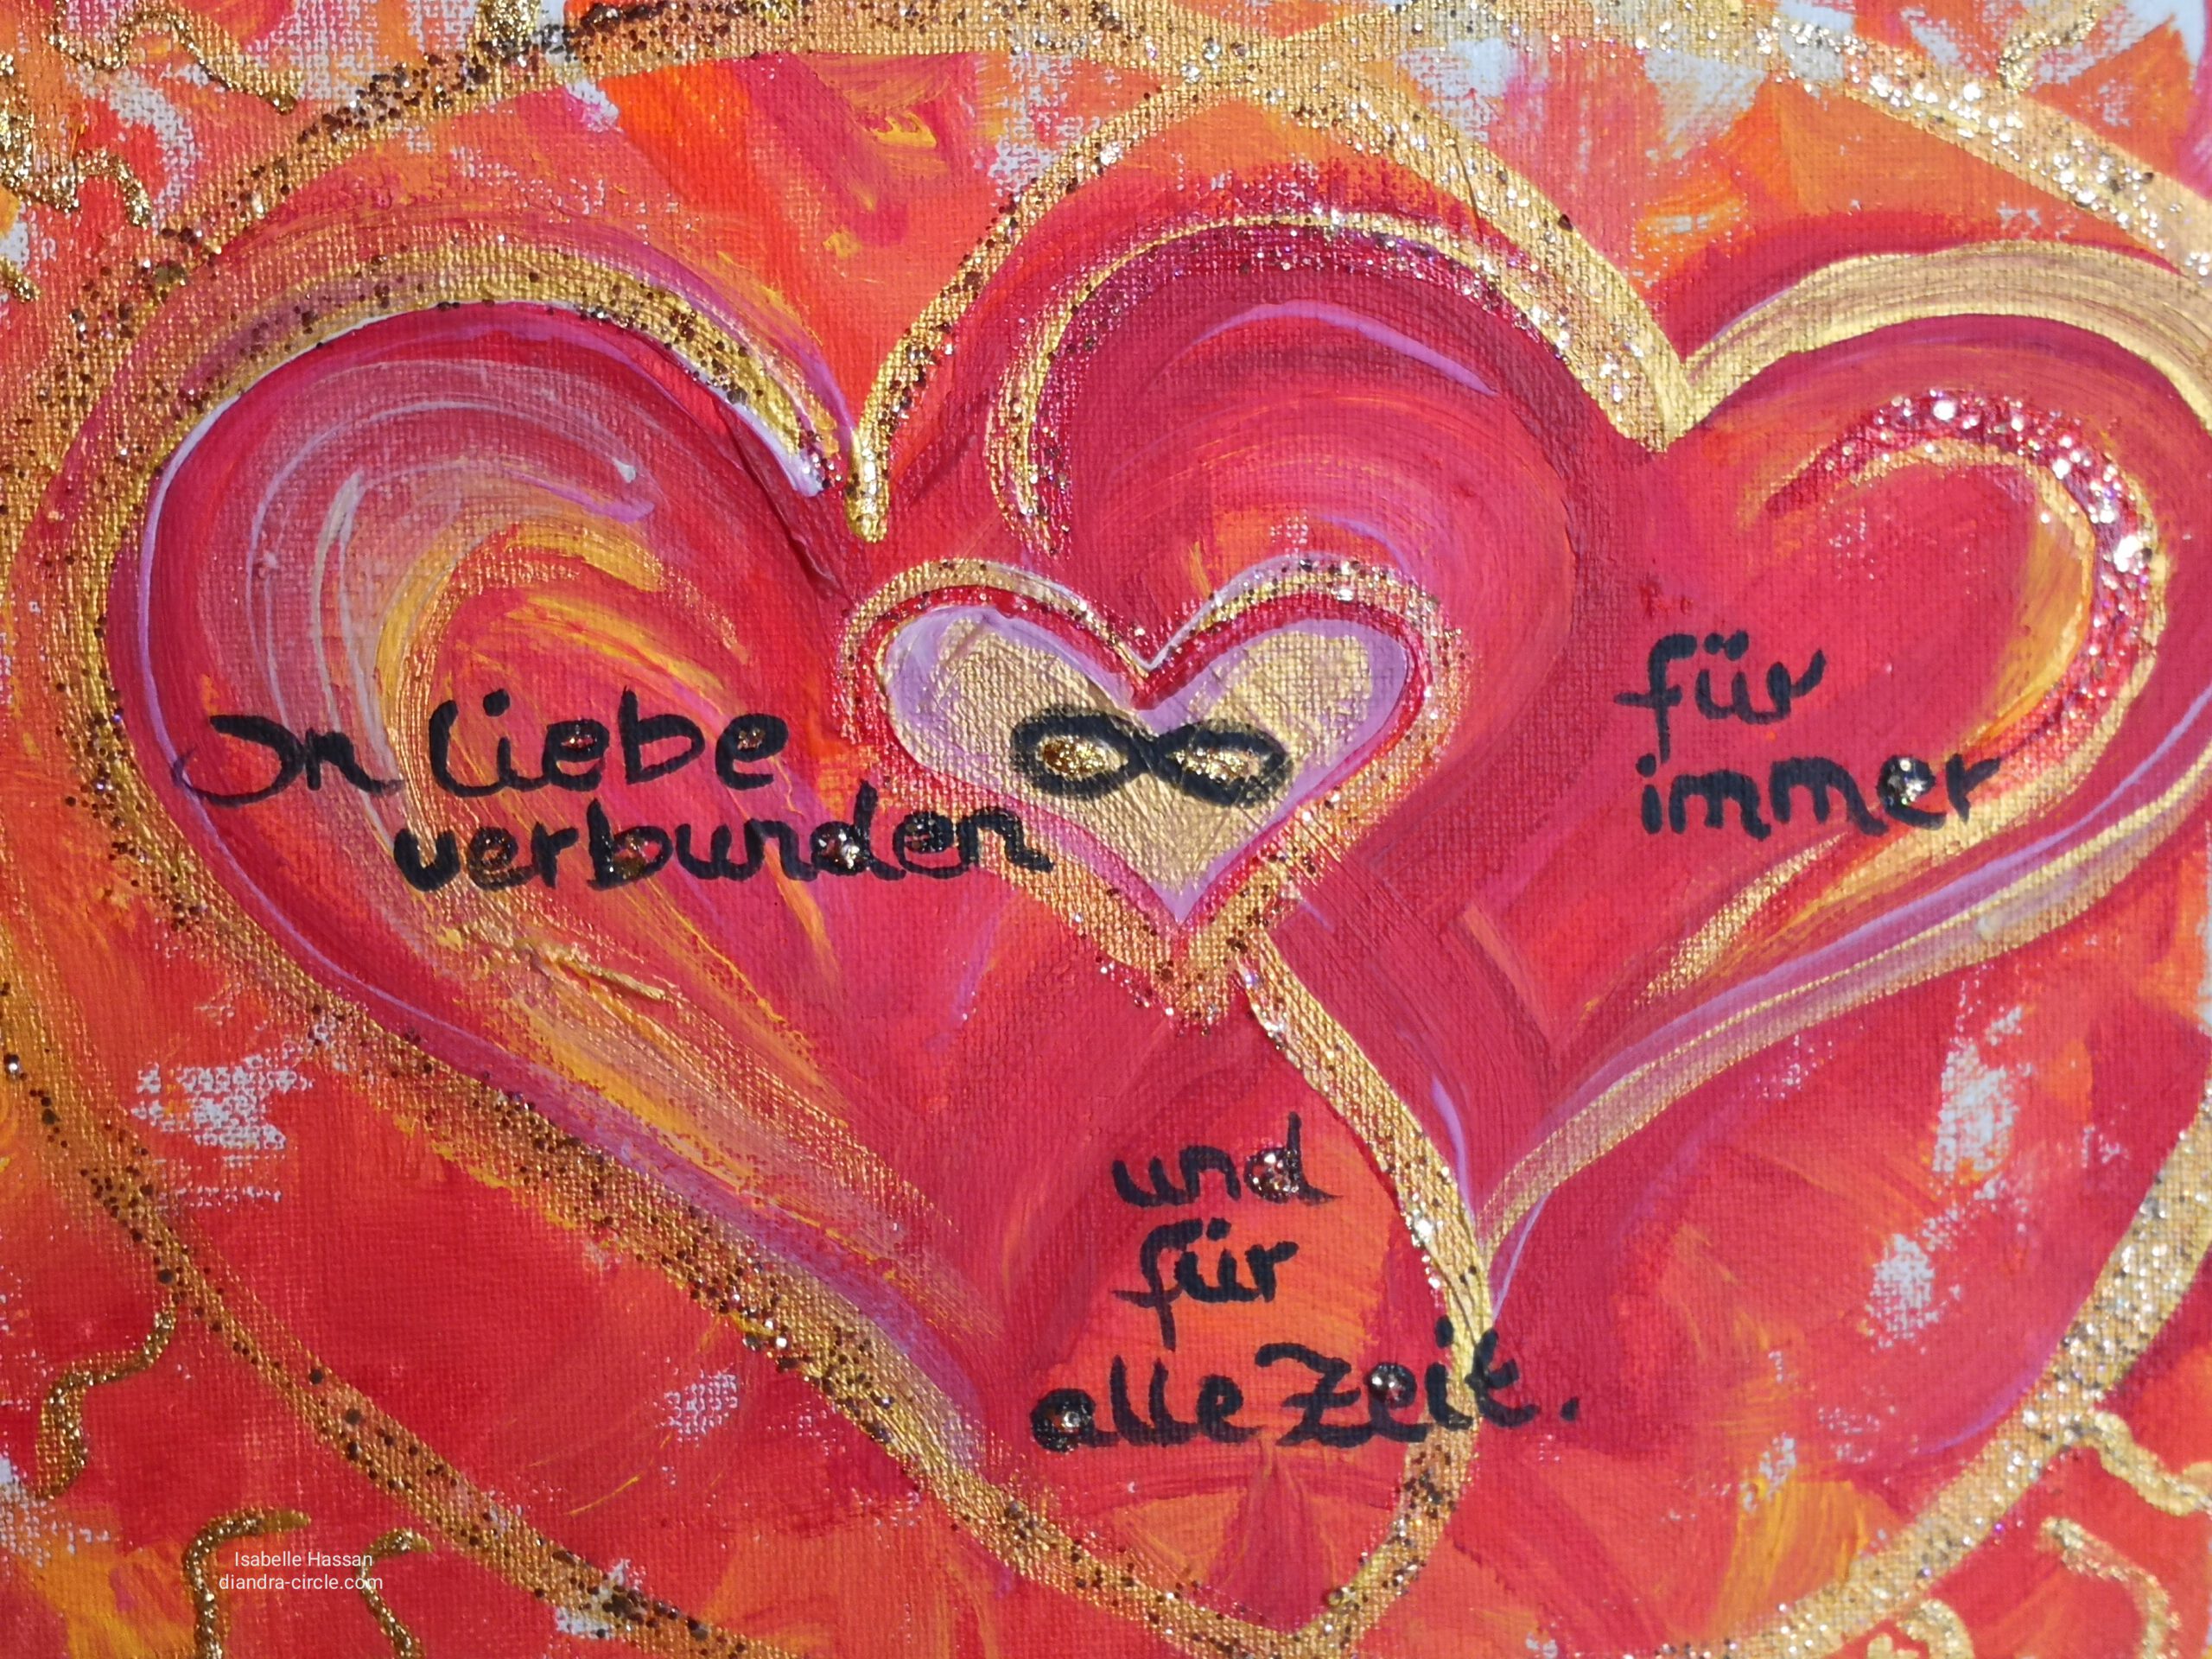 In Liebe
verbunden
∞
für
immer
und
für
alle Zeit.
Isabelle Hassan
diandra-circle.com